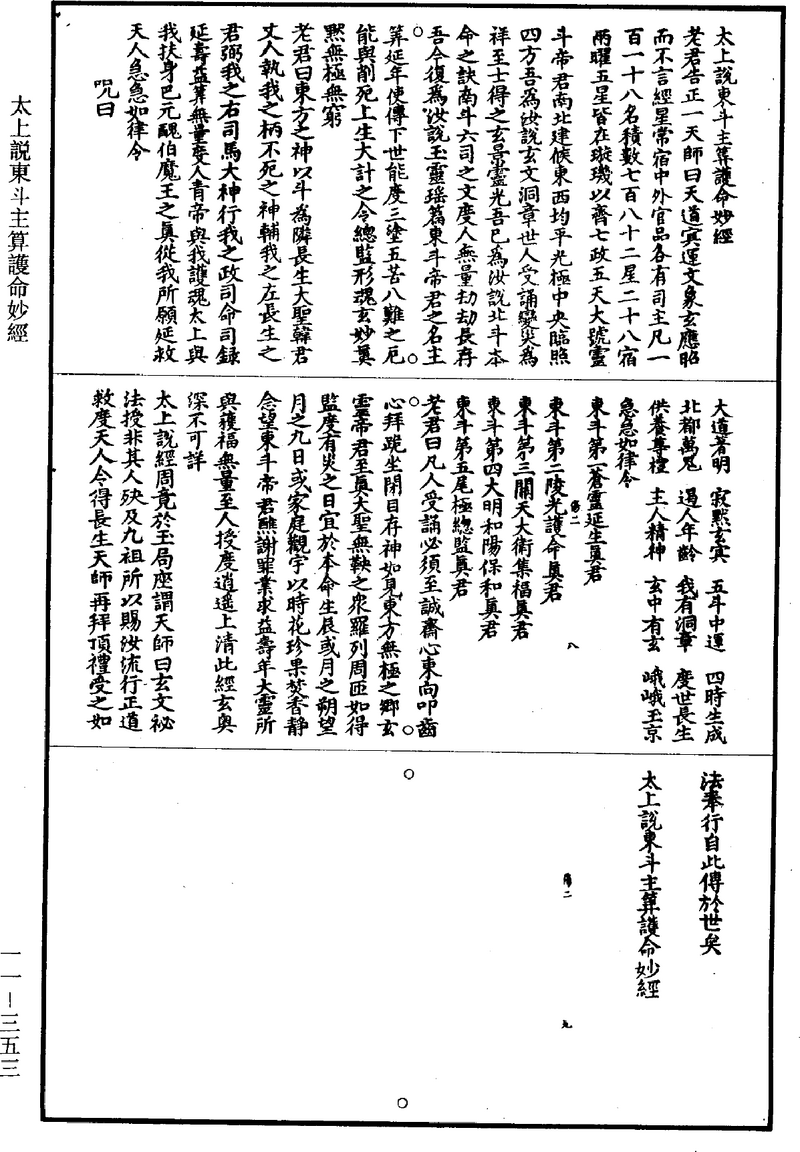 太上說東斗主算護命妙經
太上說東斗主算護命妙經
老君告正一天師曰天道冥運文象玄應昭
而不言經星常宿中外官品各有司主凡一
百一十八名積數七百八十二星二十八宿
兩曜五星皆在璇璣以齊七政五天大號靈
斗帝君南北建候東西均平光極中央臨照
四方吾爲汝說玄文洞章世人受誦變災爲
祥至士得之玄景靈光吾已爲汝說北斗本
命之訣南斗六司之文度人無量劫劫長存
吾今復爲汝說玉靈瑶篇東斗帝君之名主
筭延年使傳下世能度三塗五苦八難之厄
能與削死上生大計之令總監形魂玄妙奧
黙無極無窮
老君曰東方之神以斗爲隣長生大聖韓君
丈人執我之柄不死之神輔我之左長生之
君弼我之右司馬大神行我之政司命司錄
延壽益筭無量度人青帝與我護魂太上與
我扶身巴元醜伯魔王之眞從我所願延救
天人急急如律令
咒曰
大道著明 寂默玄冥 五斗中運 四時生成
北都萬鬼 遏人年齡 我有洞章 度世長生
供養尊禮 主人精神 玄中有玄 峨峨玉京
急急如律令
東斗第一蒼靈延生眞君
東斗第二陵光護命眞君
八
東斗第三關天大衛集福眞君
東斗第四大明和陽保和眞君
東斗第五尾極總監眞君
老君曰凡人受誦必須至誠齋心東向叩齒
心拜跪坐閉目存神如見東方無極之鄉玄
靈帝君至眞大聖無鞅之衆羅列周匝如得
監度有災之日宜於本命生辰或月之朔望
月之九日或家庭觀宇以時花珍果焚香靜
念望東斗帝君醮謝罪業求益壽年大靈所
與獲福無量至人授度逍遥上清此經玄奥
深不可詳
太上說經周竟於玉局座謂天師曰玄文祕
法授非其人殃及九祖所以賜汝流行正道
救度天人令得長生天師再拜頂禮受之如
法奉行自此傳於世矣
太上說東斗主算護命妙經
九
一一－三五三